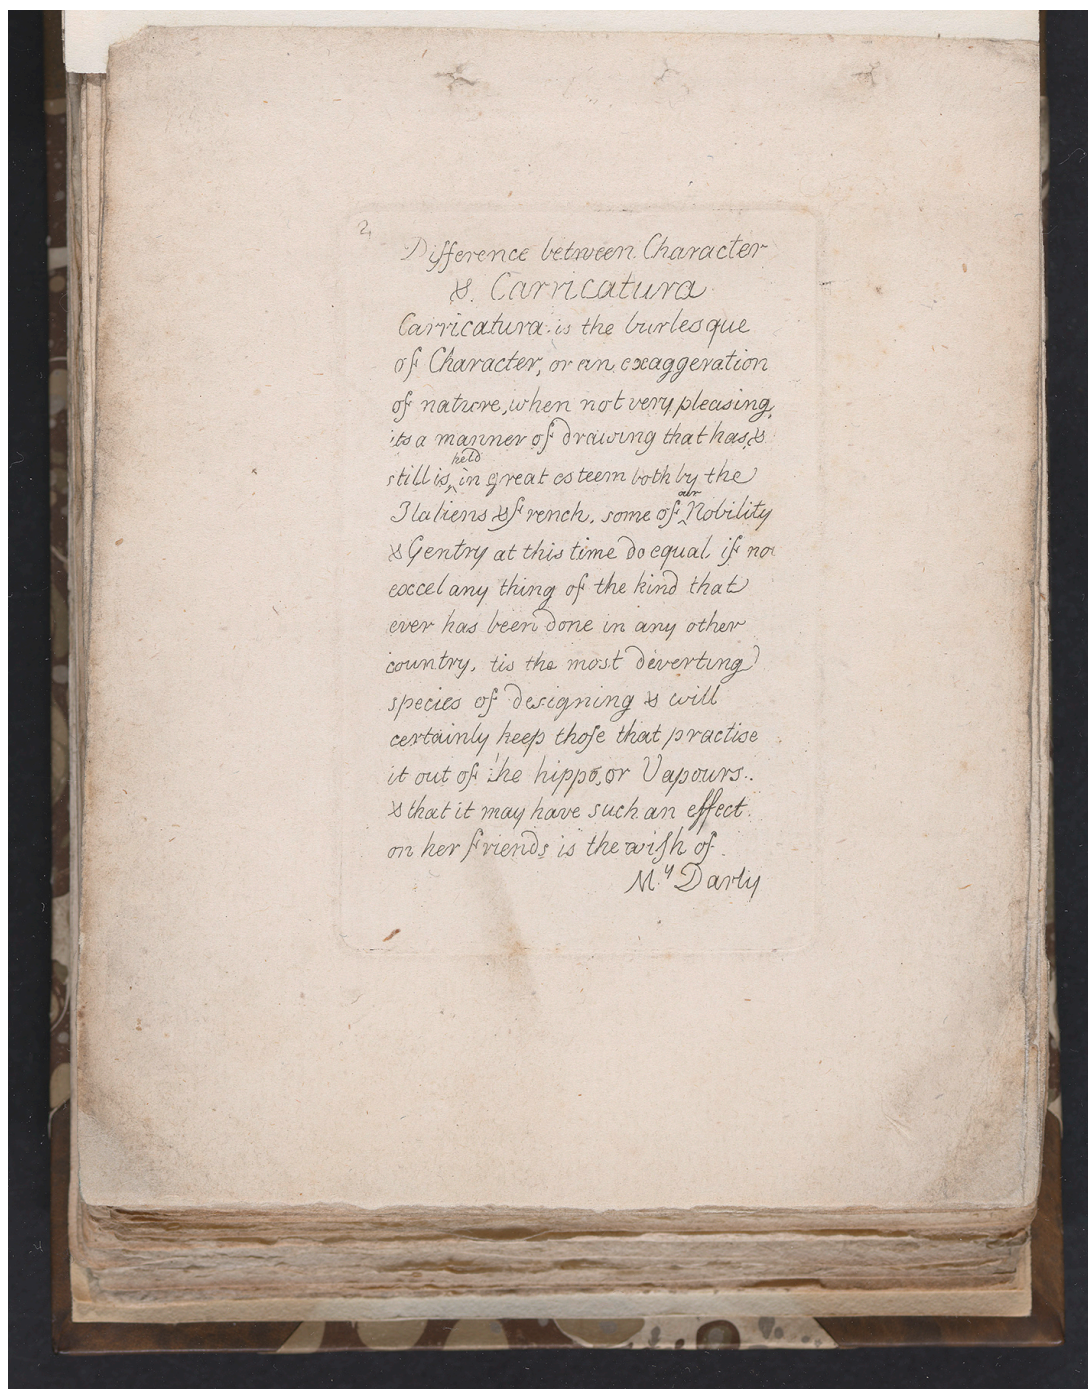 2
Difference between Character
& Carricatura
Carricatura is the burlesque
of Character, or an exaggeration
of nature, when not very pleasing,
its a manner of drawing that has, &
held
still is, in great esteem both by the
our
Italiens & French, some of Nobility
& Gentry at this time do equal if not
excel any thing of the kind that
ever has been done in any other
country, tis the most deverting
species of designing & will
certainly keep those that practise
it out of the hippo, or Vapours.
& that it may have such an effect
on her friends is the wish of
My Darly